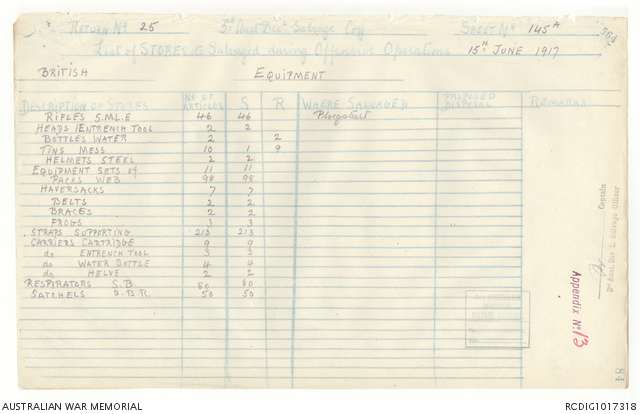 RETURN No 25 3rd Aust. Divl. Salvage Coy SHEET No 145A
List of STORES &c Salvaged during Offensive Operations 15TH JUNE 1917
BRITISH EQUIPMENT
DESCRIPTION OF STORES No OF ARTICLES S R WHERE SALVAGED PROPOSED DISPOSAL REMARKS
RIFLES S.M.L.E 46 46 Ploegsteert
HEADS ENTRENCH TOOL 2 2
BOTTLES WATER 2 2
TINS MESS 10 1 9
HELMETS STEEL 2 2
EQUIPMENT SETS of 11 11
PACKS WEB 98 98
HAVERSACKS 7 7
BELTS 2 2
BRACES 2 2
FROGS 3 3
STRAPS SUPPORTING 213 213
CARRIERS CARTRIDGE 9 9
do ENTRENCH TOOL 3 3
do WATER BOTTLE 4 4
do HELVE 2 2
RESPIRATORS S.B. 80 80
SATCHELS 50 50
Captain
3rd Aust. Div L Salvage Officer
Appendix No 13
84
AUSTRALIAN WAR MEMORIAL RCDIG1017318